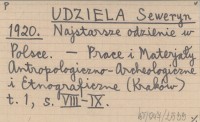 P
UDZIELA Seweryn
1920. Najstarsze odzienie w
Polsce. — Prace i Materjały
Antropologiczno-Archeologiczne
i Etnograficzne (Kraków)
t. 1, s. VIII-IX.